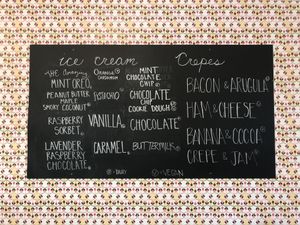 ice cream
Crepes
THE Amazing
MINT OREO
PEANUT BUTTER
MAPLE
SMOKY COCONUT
RASPBERRY
SORBET
LAVENDER
RASPBERRY
CHOCOLATE
ORANGE
CARDAMOM
PISTACHIO
VANILLA
CARAMEL
MINT
CHOCOLATE
CHIP
CHOCOLATE
CHIP
COOKIE DOUGH
CHOCOLATE
BUTTERMILK
BACON & ARUGULA
HAM & CHEESE
BANANA & COCOA
CREPE & JAM
= DAIRY
= VEGAN